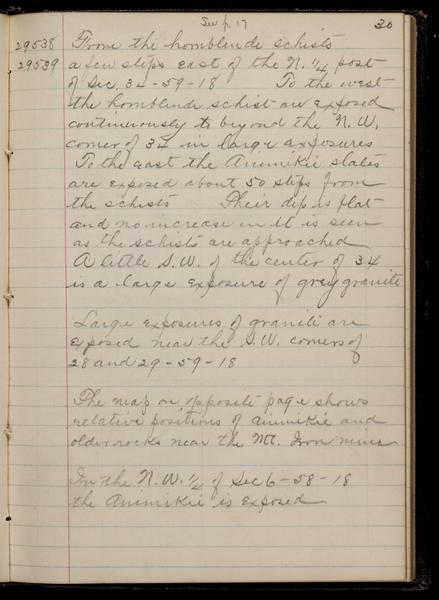 See p. 17
30
29538 From the hornblende schists
29539 a few steps east of the N. 1/4 post
of Sec. 34-59-18 To the west
the hornblende schist are exposed
continuously to beyond the N.W.
corner of 34 in large exposures
To the east the Animikie slates
are exposed about 50 steps from
the schists Their dip is flat
and no increase in it is seen
as the schists are approached
A little S.W. of the center of 34
is a large exposure of grey granite
Large exposures of granite are
exposed near the S.W. corners of
28 and 29-59-18
The map on opposite page shows
relative positions of Animikie and
older rocks near the Mt. Iron mine
In the N.W. 1/4 of Sec 6-58-18
the Animikie is exposed